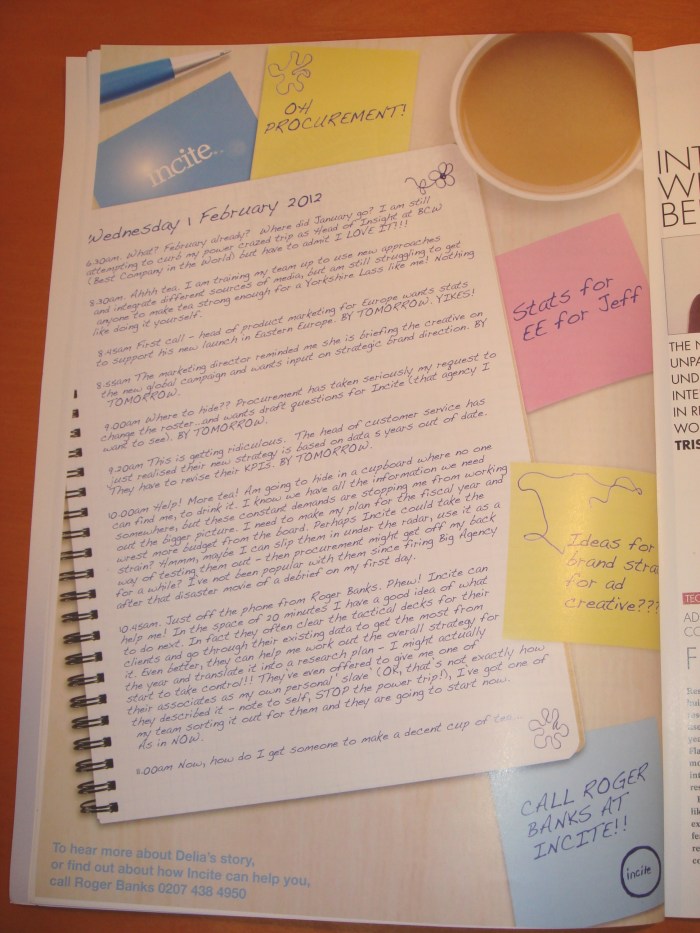 incite..
OH
PROCUREMENT!
Wednesday 1 February 2012
6.30am. What? February already? Where did January go? I am still
attempting to curb my power crazed trip as Head of Insight at BCW
(Best Company in the World) but have to admit I LOVE IT?!!
8.30am. Ahhh tea. I am training my team up to use new approaches
and integrate different sources of media, but am still struggling to get
anyone to make tea strong enough for a Yorkshire Lass like me! Nothing
like doing it yourself.
8.45am First call – head of product marketing for Europe wants stats
to support his new launch in Eastern Europe. BY TOMORROW. YIKES!
8.55am The marketing director reminded me she is briefing the creative on
the new global campaign and wants input on strategic brand direction. BY
TOMORROW.
9.00am Where to hide?? Procurement has taken seriously my request to
change the roster...and wants draft questions for Incite (that agency I
want to see). BY TOMORROW.
9.20am This is getting ridiculous. The head of customer service has
just realised their new strategy is based on data 5 years out of date.
They have to revise their KPIS. BY TOMORROW.
10.00am Help! More tea! Am going to hide in a cupboard where no one
can find me, to drink it. I know we have all the information we need
somewhere, but these constant demands are stopping me from working
out the bigger picture. I need to make my plan for the fiscal year and
wrest more budget from the board. Perhaps Incite could take the
strain? Hmmm, maybe I can slip them in under the radar, use it as a
way of testing them out – then procurement might get off my back
for a while? I've not been popular with them since firing Big Agency
after that disaster movie of a debrief on my first day.
10.45am. Just off the phone from Roger Banks. Phew! Incite can
help me! In the space of 20 minutes I have a good idea of what
to do next. In fact they often clear the tactical decks for their
clients and go through their existing data to get the most from
it. Even better, they can help me work out the overall strategy for
the year and translate it into a research plan – I might actually
start to take control!! They've even offered to give me one of
their associates as my own personal 'slave' (OK, that's not exactly how
they described it – note to self, STOP the power trip!), I've got one of
my team sorting it out for them and they are going to start now.
As in NOW.
.00am Now, how do I get someone to make a decent cup of tea....
Stats for
EE for Jeff
Ideas for
brand strat
for ad
creative???
CALL ROGER
BANKS AT
INCITE!!
incite
To hear more about Delia's story,
or find out about how Incite can help you,
call Roger Banks 0207 438 4950
INT
WI
BE
THE N
UNPA
UND
INTE
IN R
WO
TRIS
TEC
AD
CO
F